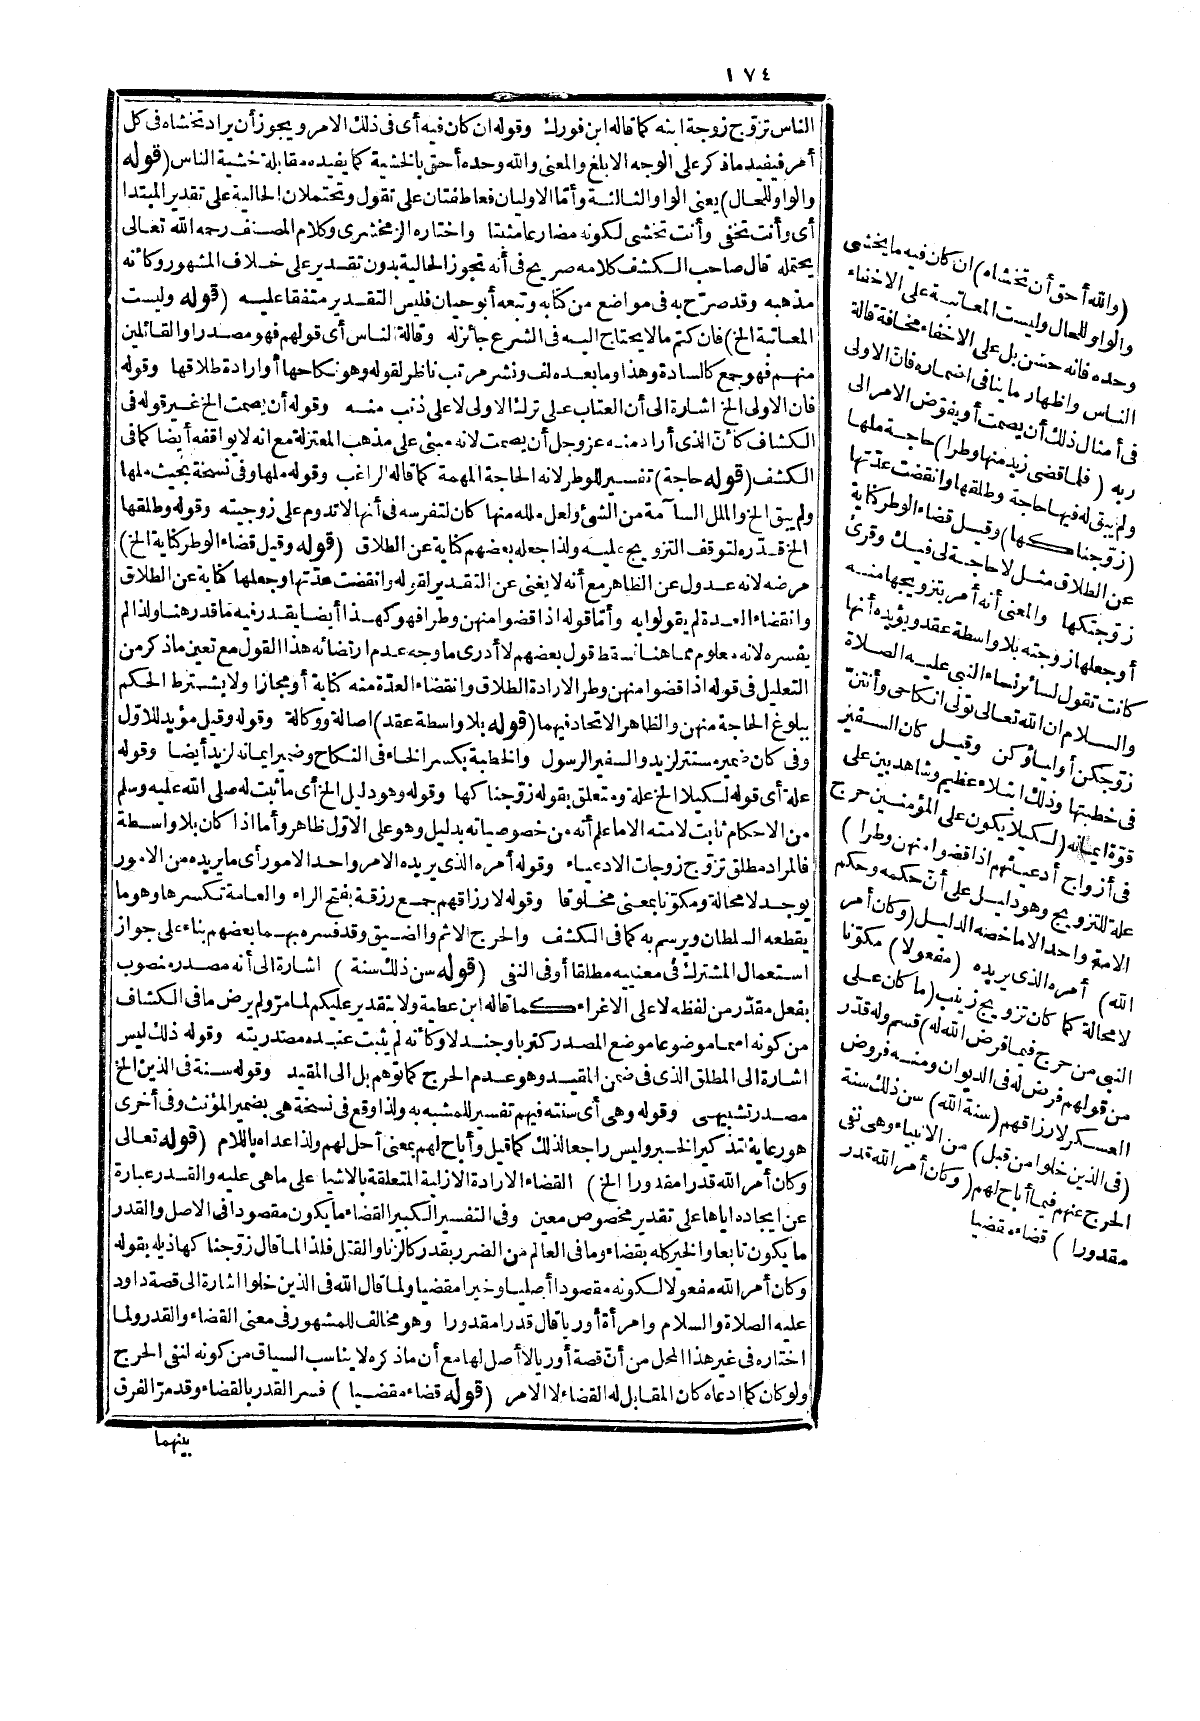 ١٧٤
الناس تزوّج زوجة ابنه كما قاله ابن فورك وقوله ان كان فيه أى فى ذلك الامر ويجوز أن يراد تخشاه فى كل
أمر فيفيد ما ذكر على الوجه الابلغ والمعنى والله وحده أحق بالخشية كما يفيده مقابلة خشية الناس (قوله
والواو للحال) يعنى الواو الثالثة وأمّا الاوليان فعاطفتان على تقول ويحتملان الحالية على تقدير المبتدا
أى وأنت تخفى وأنت تخشى لكونه مضارعا مثبتا واختاره الزمخشرى وكلام المصنف رحمه الله تعالى
يحتمله قال صاحب الكشف كلامه صريح فى أنه تجوز الحالية بدون تقدير على خلاف المشهور وكأنه
مذهبه وقد صرّح به فى مواضع من كتابه وتبعه أبو حيان فليس التقدير متفقا عليه (قوله وليست
المعاتبة الخ) فان كتم ما لا يحتاج اليه فى الشرع جائز له وقالة الناس أى قولهم فهو مصدر او القائلين
منهم فهو جمع كالسادة وهذا وما بعده لف ونشر مرتب ناظر لقوله وهو نكاحها أو ارادة طلاقها وقوله
فان الاولى الخ اشارة الى أن العتاب على ترك الاولى لا على ذنب منه وقوله أن يصمت الخ غير قوله فى
الكشاف كأنّ الذى أراد منه عزوجل أن يصمت لانه مبنى على مذهب المعتزلة مع انه لا يوافقه أيضا كما فى
الكشف (قوله حاجة) تفسير للوطر لانه الحاجة المهمة كما قاله الراغب وقوله ملها وفى نسخة بحيث ملها
ولم يبق الخ والملل السآمة من الشئ ولعل ملله منها كان لتفرسه فى أنها لا تدوم على زوجيته وقوله وطلقها
الخ قدّره لتوقف التزويج عليه ولذا جعله بعضهم كناية عن الطلاق (قوله وقيل قضاء الوطر كناية الخ)
مرضه لانه عدول عن الظاهر مع أنه لا يغنى عن التقدير لقوله وانقضت عدّتها وجعلها كناية عن الطلاق
وانقضاء العدة لم يقولوا به وأمّا قوله اذا قضوا منهن وطرا فهو كهذا أيضا يقدر فيه ما قدر هنا ولذا لم
يفسره لانه معلوم مما هنا فسقط قول بعضهم لا أدرى ما وجه عدم ارتضائه هذا القول مع تعين ما ذكر من
التعليل فى قوله اذا قضوا منهن وطرا لارادة الطلاق وانقضاء العدّة منه كناية أو مجازا ولا يشترط الحكم
ببلوغ الحاجة منهن والظاهر الاتحاد فيهما (قوله بلا واسطة عقد) اصالة ووكالة وقوله وقيل مؤيد للاوّل
وفى كان ضمير مستتر لزيد والسفير الرسول والخطبة بكسر الخاء فى النكاح وضمير ايمانه لزيد أيضا وقوله
علة أى قوله لكيلا الخ علة ومتعلق بقوله زوّجناكها وقوله وهو دليل الخ أى ما ثبت له صلى الله عليه وسلم
من الاحكام ثابت لامته الا ما علم أنه من خصوصياته بدليل وهو على الاوّل ظاهر وأما اذا كان بلا واسطة
فالمراد مطلق تزوّج زوجات الادعياء وقوله أمره الذى يريده الامر واحد الامور أى ما يريده من الامور
يوجد لا محالة ومكوّنا بمعنى مخلوقا وقوله لارزاقهم جمع رزقة بفتح الراء والعامة تكسرها وهو ما
يقطعه السلطان ويرسم به كما فى الكشف والحرج الاثم والضيق وقد فسره بهما بعضهم بناء على جواز
استعمال المشترك فى معنييه مطلقا أو فى النفى (قوله سن ذلك سنة) اشارة الى أنه مصدر منصوب
بفعل مقدّر من لفظه لا على الاغراء كما قاله ابن عطية ولا بتقدير عليكم لما مرّ ولم يرض ما فى الكشاف
من كونه اسما موضوعا موضع المصدر كتربا وجندلا وكأنه لم يثبت عنده مصدريته وقوله ذلك ليس
اشارة الى المطلق الذى فى ضمن المقيد وهو عدم الحرج كما توهم بل الى المقيد وقوله سنة فى الذين الخ
مصدر تشبيهى وقوله وهى أى سنته فيهم تفسير للمشبه به ولذا وقع فى نسخة هى بضمير المؤنث وفى أخرى
هو رعاية لتذكير الخبر وليس راجعا لذلك كما قيل وأباح لهم بمعنى أحل لهم ولذا عداه باللام (قوله تعالى
وكان أمر الله قدرا مقدورا الخ) القضاء الارادة الازلية المتعلقة بالاشيا على ما هى عليه والقدر عبارة
عن ايجاده اياها على تقدير مخصوص معين وفى التفسير الكبير القضاء ما يكون مقصودا فى الاصل والقدر
ما يكون تابعا والخير كله بقضاء وما فى العالم من الضرر بقدر كالزنا والقتل فلذا لما قال زوّجناكها ذيله بقوله
وكان أمر الله مفعولا لكونه مقصودا أصليا وخيرا مقضيا ولما قال الله فى الذين خلوا اشارة الى قصة داود
عليه الصلاة والسلام وامرأة أوريا قال قدرا مقدورا وهو مخالف للمشهور فى معنى القضاء والقدر ولما
اختاره فى غير هذا المحل من أنّ قصة أوريا لا أصل لها مع أن ما ذكره لا يناسب السياق من كونه لنفى الحرج
ولو كان كما ادعاه كان المقابل له القضاء لا الامر (قوله قضاء مقضيا) فسر القدر بالقضاء وقد مرّ الفرق
بينهما
(والله أحق أن تخشاه) ان كان فيه ما يخشى
والواو للحال وليست المعاتبة على الاخفاء
وحده فانه حسن بل على الاخفاء مخافة قالة
الناس واظهار ما ينافى اضماره فان الاولى
فى أمثال ذلك أن يصمت أو يفوّض الامر الى
ربه (فلما قضى زيد منها وطرا) حاجة ملها
ولم يبق له فيها حاجة وطلقها وانقضت عدّتها
(زوّجناكها) وقيل قضاء الوطر كناية
عن الطلاق مثل لا حاجة لى فيك وقرئ
زوّجتكها والمعنى أنه أمر بتزويجها منه
أو جعلها زوجته بلا واسطة عقد ويؤيده أنها
كانت تقول لسائر نساء النبى عليه الصلاة
والسلام ان الله تعالى تولى انكاحى وأنتنّ
زوّجكن أولياؤكن وقيل كان السفير
فى خطبتها وذلك ابتلاء عظيم وشاهد بين على
قوّة ايمانه (لكيلا يكون على المؤمنين حرج
فى أزواج أدعيائهم اذا قضوا منهن وطرا)
علة للتزويج وهو دليل على أنّ حكمه وحكم
الامة واحد الا ما خصه الدليل (وكان أمر
الله) أمره الذى يريده (مفعولا) مكوّنا
لا محالة كما كان تزويج زينب (ما كان على
النبى من حرج فيما فرض الله له) قسم له وقدّر
من قولهم فرض له فى الديوان ومنه فروض
العسكر لارزاقهم (سنة الله) سن ذلك سنة
(فى الذين خلوا من قبل) من الانبياء وهى نفى
الحرج عنهم فيما أباح لهم (وكان أمر الله قدرا
مقدورا) قضاء مقضيا